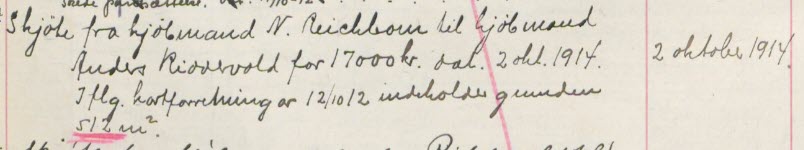 Skjøte fra kjøbmand N. Reichborn til kjøbmand
Anders Riddervold for 17000 kr. dat. 2 okt. 1914.
2 oktober 1914.
Iflg. kartforretning av 12/10 12 indeholder grunden
512 m².